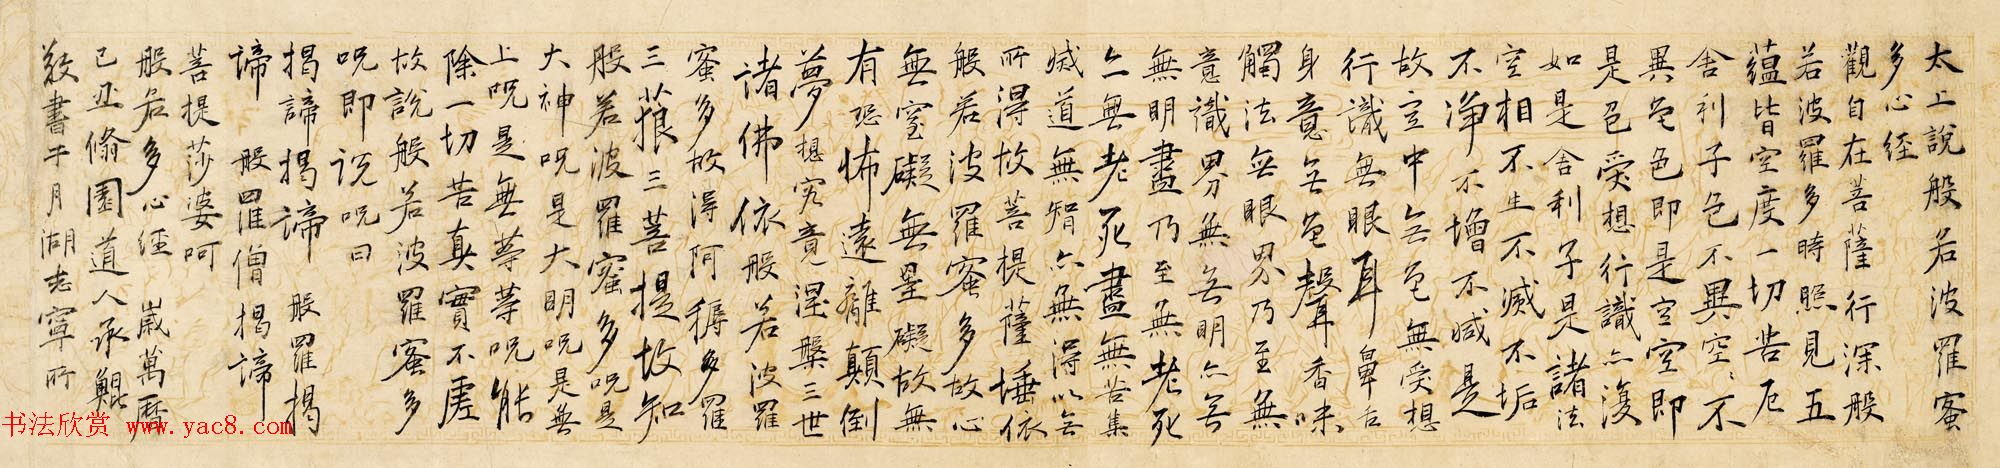 太上說般若波羅蜜
多心經
觀自在菩薩行深般
若波羅多時照見五
蘊皆空度一切苦厄
舍利子色不異空〻不
異色色即是空空即
是色受想行識亦復
如是舍利子是諸法
空相不生不滅不垢
不淨不增不減是
故空中無色無受想
行識無眼耳鼻舌
身意無色聲香味
觸法無眼界乃至無
意識界無無明亦無
無明盡乃至無老死
亦無老死盡無苦集
滅道無智亦無得以無
所得故菩提薩埵依
般若波羅蜜多故心
無罣礙無罣礙故無
有恐怖遠離顛倒
夢想究竟涅槃三世
諸佛依般若波羅
蜜多故得阿耨多羅
三藐三菩提故知
般若波羅蜜多呪是
大神呪是大明呪是無
上呪是無等等呪能
除一切苦真實不虛
故說般若波羅蜜多
呪即說呪曰
揭諦揭諦 般羅揭
諦 般羅僧揭諦
菩提莎婆呵
般若多心經 歲萬曆
己丑翛園道人承鯤
敬書于月湖老寧所
书法欣赏 www.yac8.com